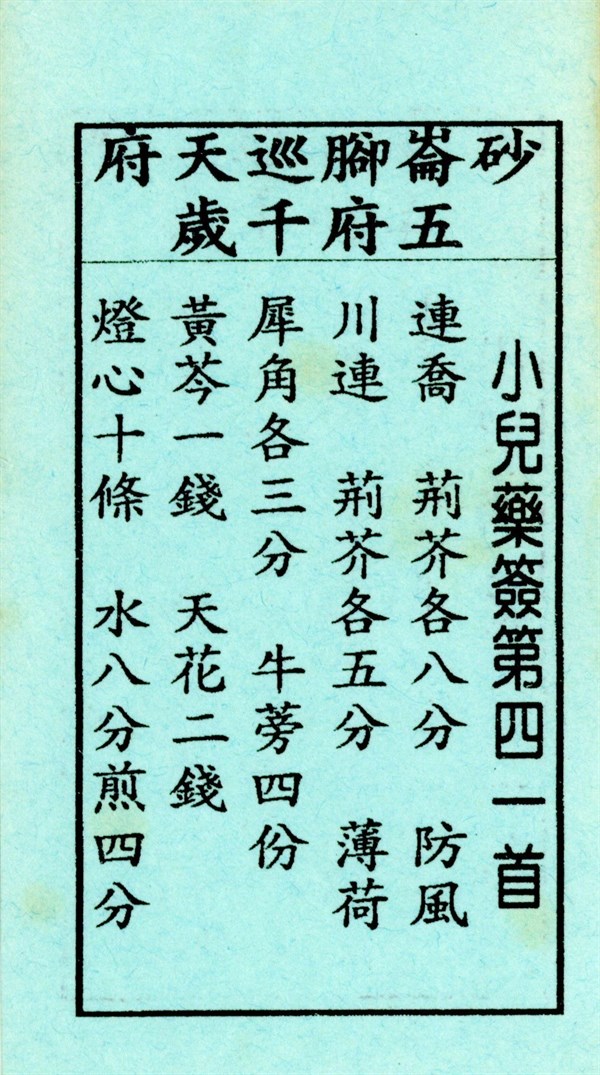 砂崙腳巡天府
五府千歲
小兒藥簽第四一首
連喬 荊芥各八分 防風
川連 荊芥各五分 薄荷
犀角各三分 牛蒡四份
黃芩一錢 天花二錢
燈心十條 水八分煎四分